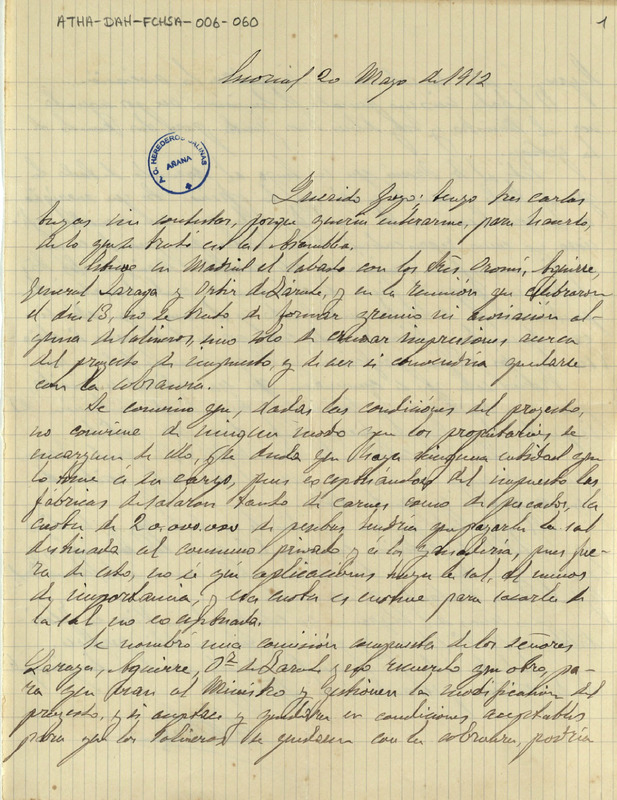 ATHA-DAH-FCHSA-006-060
1
Escorial 20 Mayo de 1912
A. G. HEREDEROS SALINAS
ARANA
Querido Goyo: tengo tres cartas
tuyas sin contestar, porque quería enterarme, para hacerlo,
de lo que se trató en la Asamblea.
Estuve en Madrid el Sábado con los Oromí, Aguirre,
General Lazaga y Ortiz de Zárate, y en la reunión que celebraron
el día 13, no se trató de formar gremio ni asociación al-
guna de salineros, sino solo de cruzar impresiones acerca
del proyecto de impuesto, y de ver si convendría quedarse
con la cobranza.
Se convino que, dadas las condiciones del proyecto,
no conviene de ningún modo que los propietarios se
encarguen de ello, y se duda que haya ninguna entidad que
lo tome á su cargo, pues exceptuándose del impuesto las
fábricas de salazón tanto de carnes como de pescados, la
cuota de 20.000.000 de pesetas tendría que pagarla la sal
destinada al consumo privado y á la ganadería, pues fue-
ra de esto, no sé qué aplicaciones tenga la sal, al menos
de importancia, y esa cuota es enorme para sacarla de
la sal no exceptuada.
Se nombró una comisión compuesta de los señores
Lazaga, Aguirre, O. de Zárate y no recuerdo que otro, pa-
ra que vean al Ministro y gestionen la modificación del
proyecto, y si aceptase y quedara en condiciones aceptables
para que los salineros se quedasen con la cobranza, podría